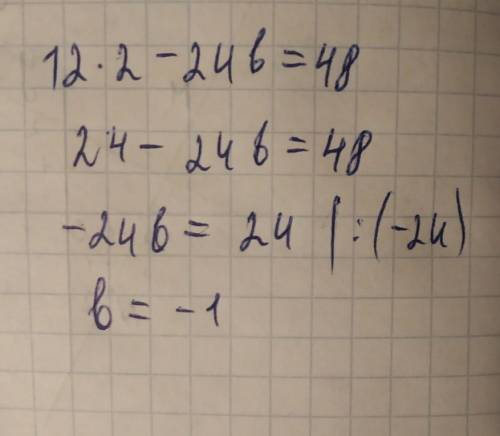 12·2-24b=48
24-24b=48
-24b=24 |:(-24)
b=-1